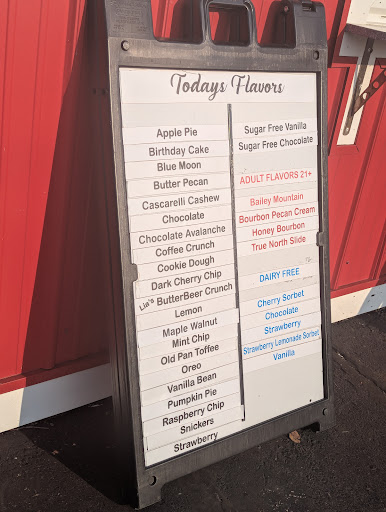 Todays Flavors
Apple Pie
Birthday Cake
Blue Moon
Butter Pecan
Cascarelli Cashew
Chocolate
Chocolate Avalanche
Coffee Crunch
Cookie Dough
Dark Cherry Chip
Lia's ButterBeer Crunch
Lemon
Maple Walnut
Mint Chip
Old Pan Toffee
Oreo
Vanilla Bean
Pumpkin Pie
Raspberry Chip
Snickers
Strawberry
Sugar Free Vanilla
Sugar Free Chocolate
ADULT FLAVORS 21+
Bailey Mountain
Bourbon Pecan Cream
Honey Bourbon
True North Slide
DAIRY FREE
Cherry Sorbet
Chocolate
Strawberry
Strawberry Lemonade Sorbet
Vanilla